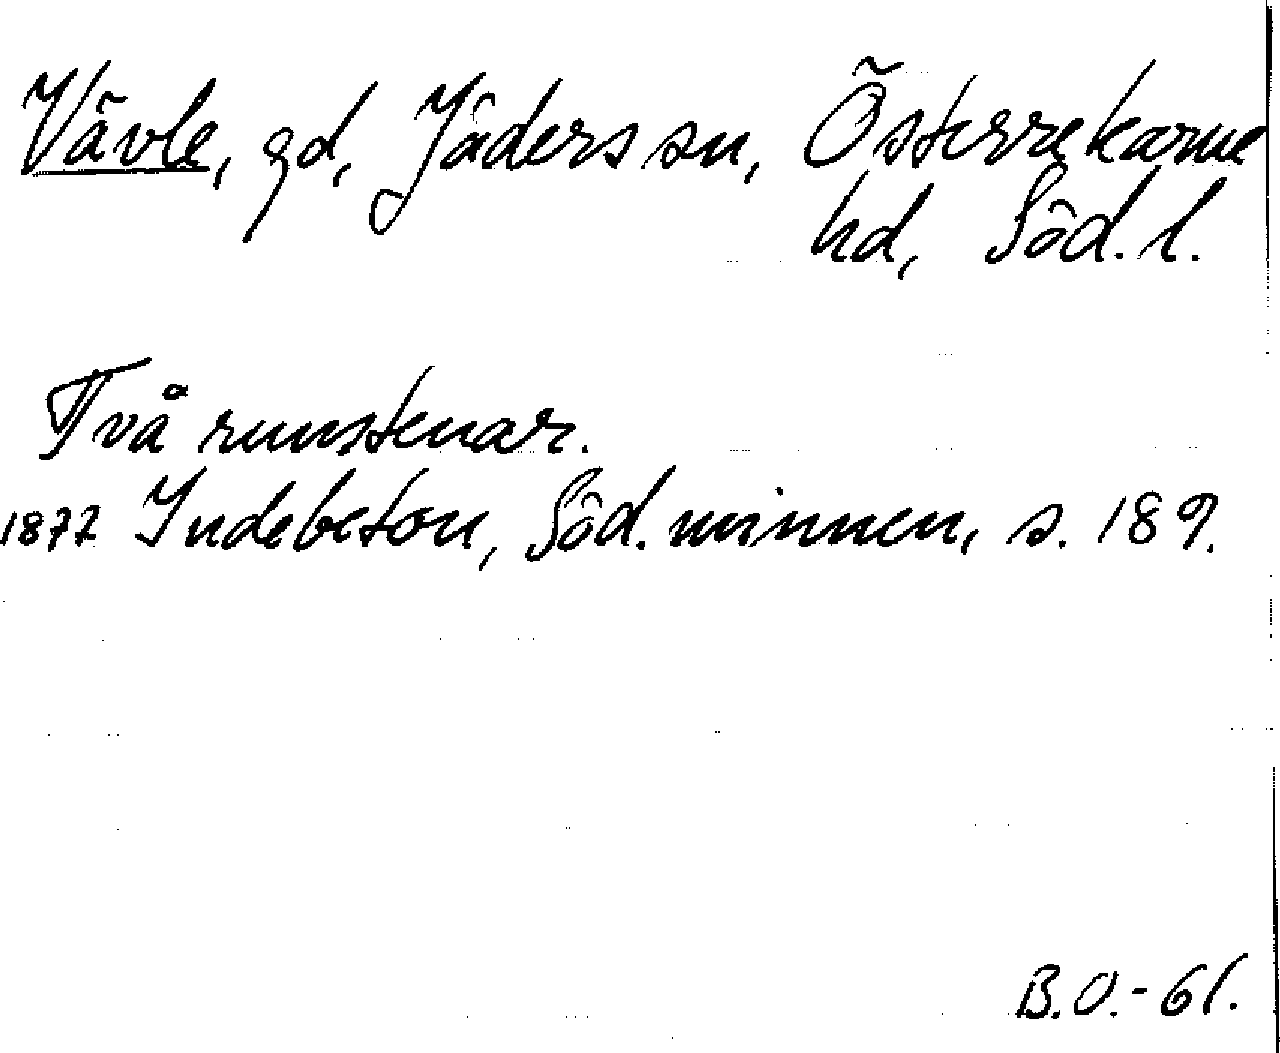 Vävle, gd, Jäders sn, Österrekarne
hd, Söd. l.
Två runstenar.
1877 Indebetou, Söd. minnen, s. 189.
B.O.-61.